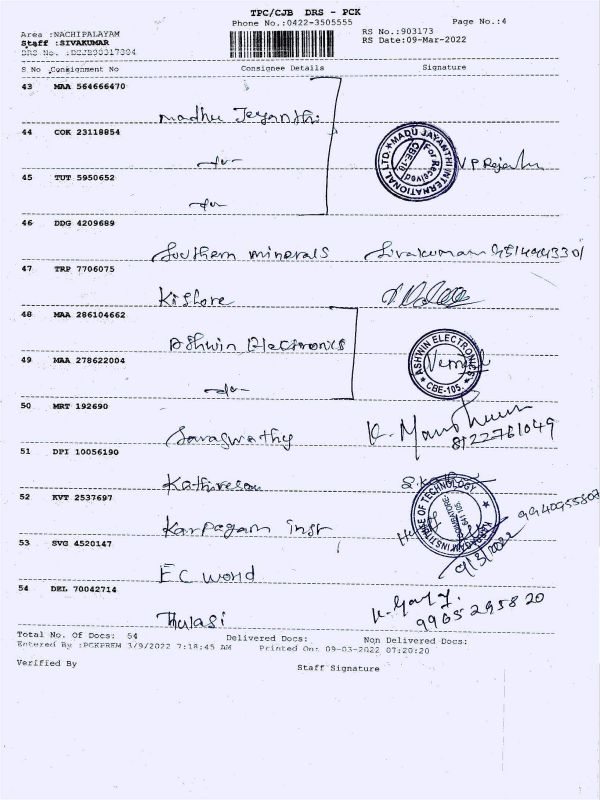 TPC/CJB DRS - PCK
Phone No.:0422-3505555
Page No.:4
Area :NACHIPALAYAM
RS No.:903173
Staff :SIVAKUMAR
RS Date:09-Mar-2022
S No Consignment No Consignee Details Signature
43 MAA 564666470
Madhu Jeyanthi
44 COK 23118854
-do-
MADU JAYANTHI INTERNATIONAL LTD.
For Received
CBE-18
45 TUT 5950652
-do-
46 DDG 4209689
Southern minerals Sivakumar
47 TRP 7706075
Kishore
48 MAA 286104662
Ashwin Electronics
ASHWIN ELECTRONICS
CBE-105.
49 MAA 278622004
-do-
50 MRT 192690
Saraswathy
8122761049
51 DPI 10056190
Kathiresan
52 KVT 2537697
Karpagam inst
KARPAGAM INSTITUTE OF TECHNOLOGY
COIMBATORE
641 105.
9/3/2022
53 SVG 4520147
EC world
54 DEL 70042714
Thulasi
9965295820
Total No. Of Docs: 54 Delivered Docs: Non Delivered Docs:
Entered By :PCKPREM 3/9/2022 7:18:45 AM Printed On: 09-03-2022 07:20:20
Verified By
Staff Signature